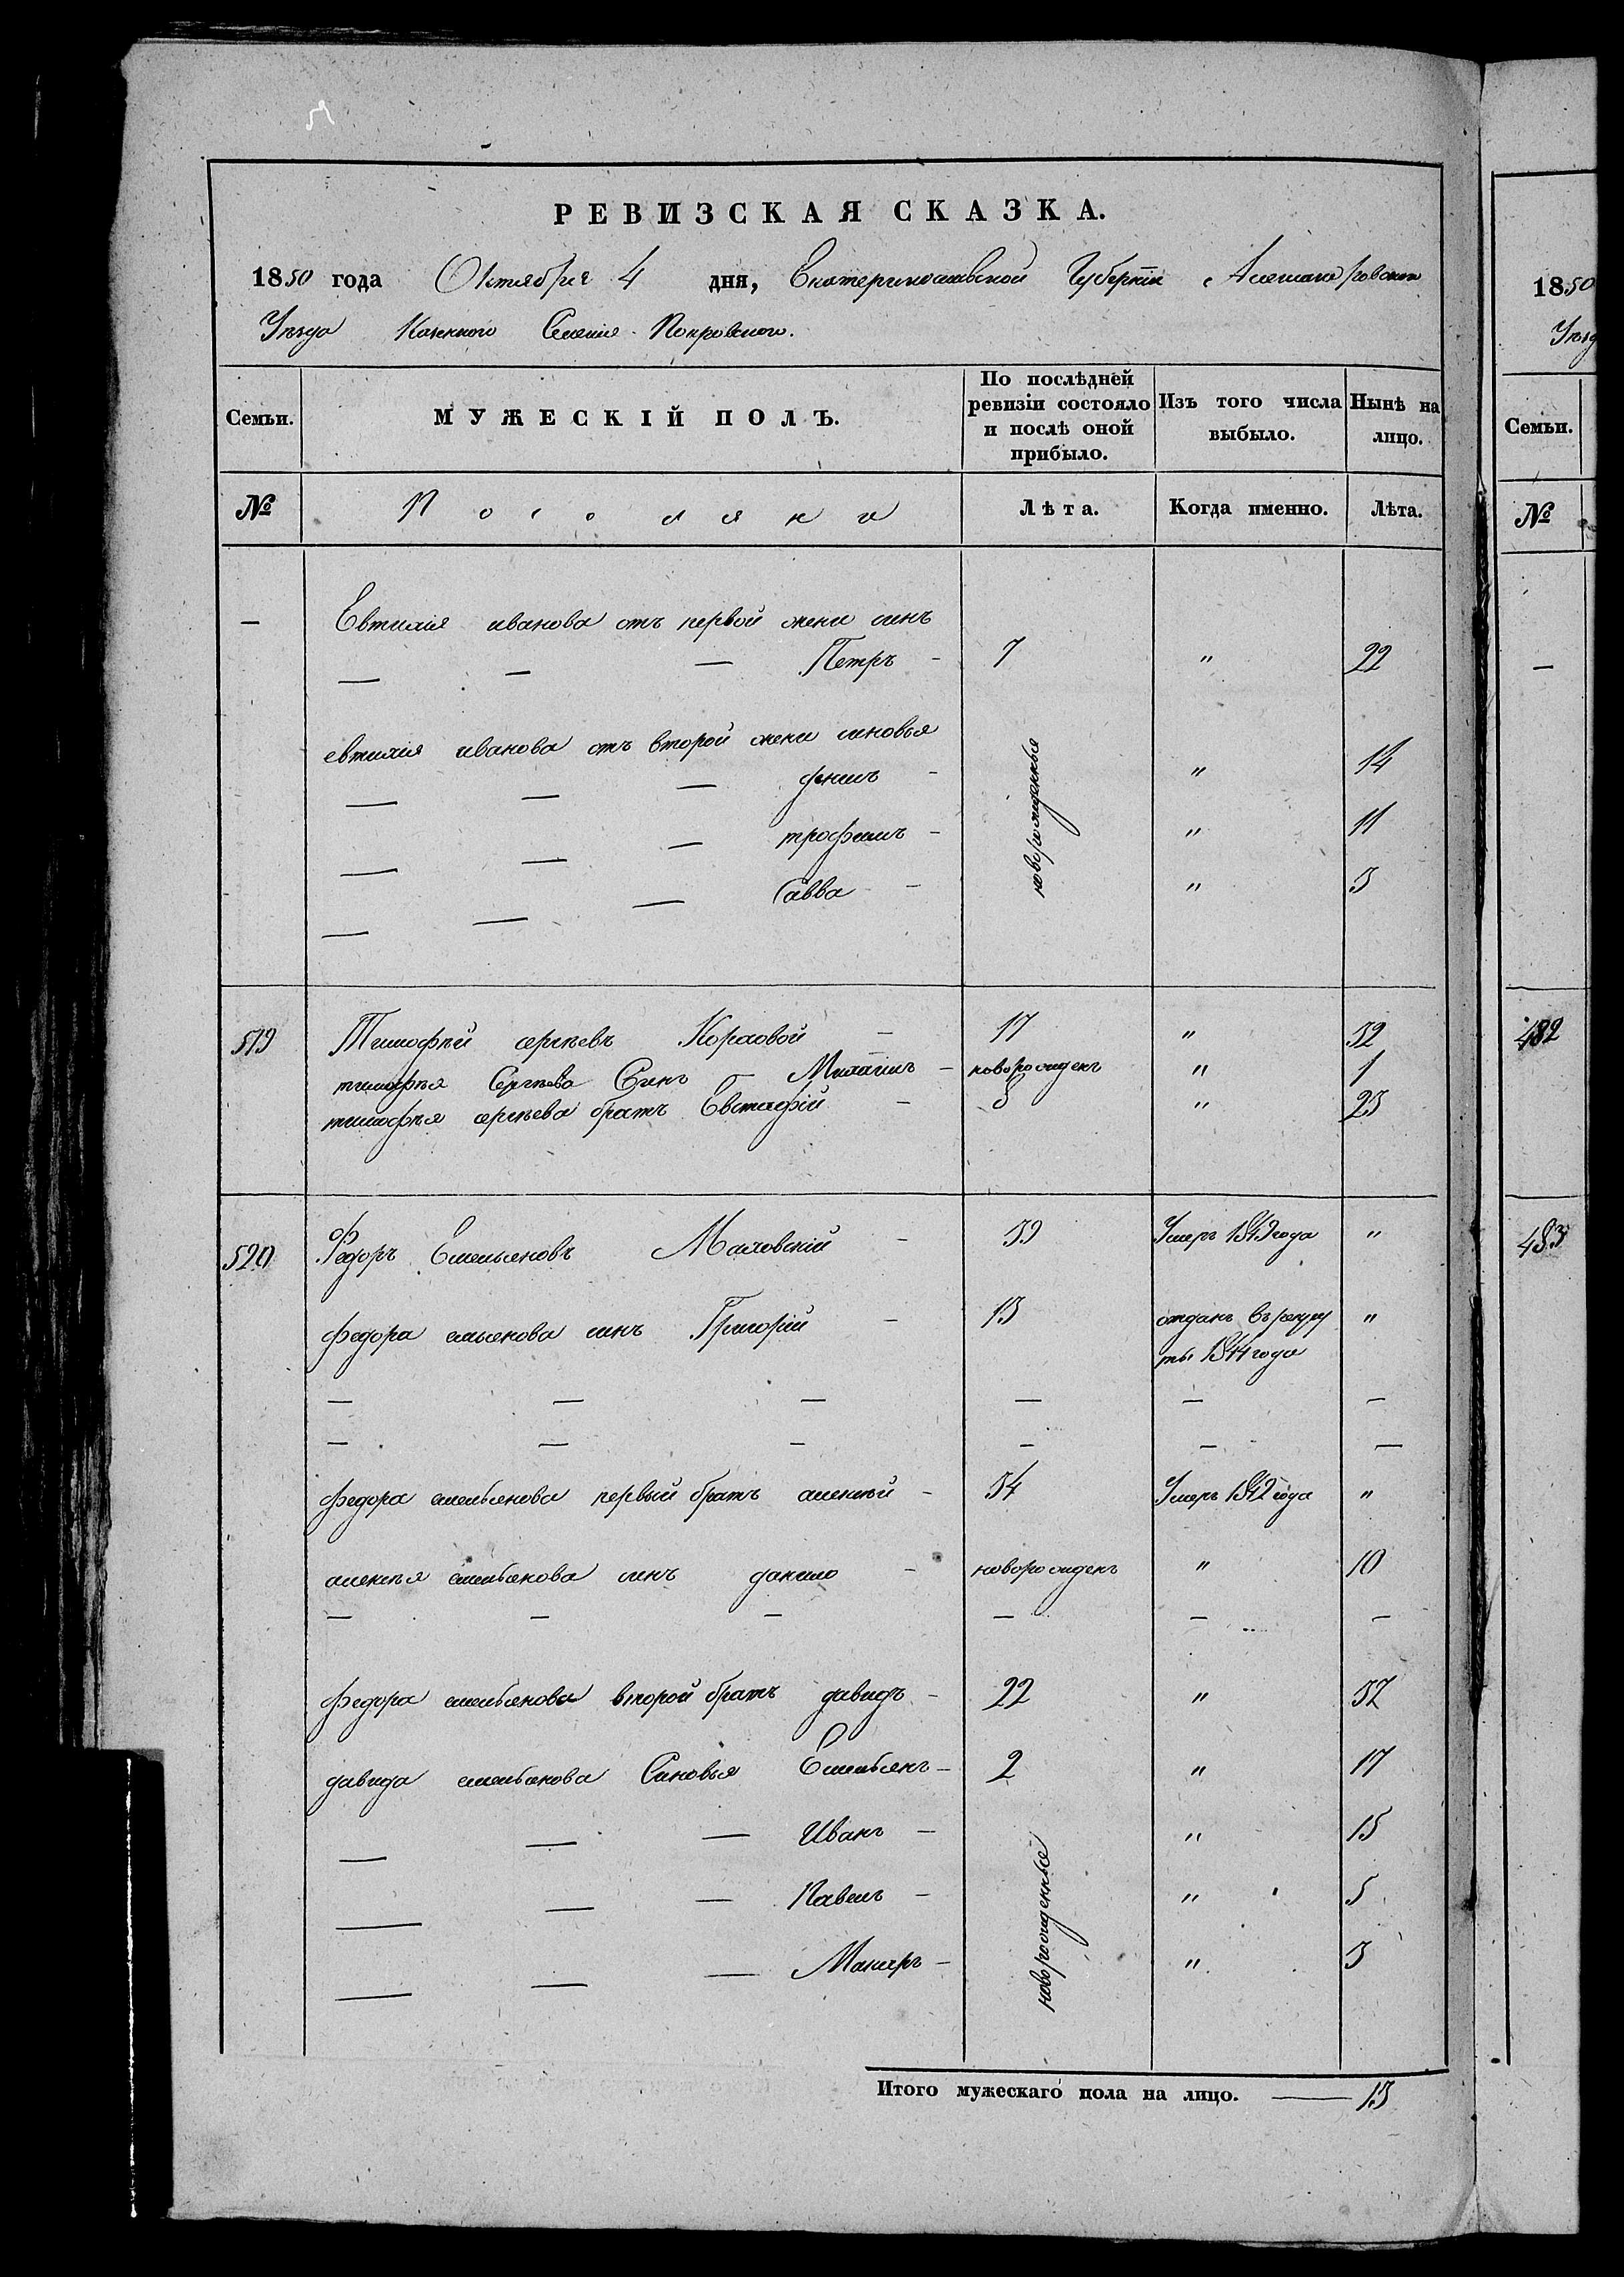 РЕВИЗСКАЯ СКАЗКА.
1850 года Октября 4 дня, Екатеринославской Губерніи Александровскаго
Уѣзда Казеннаго Селенія Покровскаго.
Семьи.
МУЖЕСКІЙ ПОЛЪ.
По послѣдней ревизіи состояло и послѣ оной прибыло.
Изъ того числа выбыло.
Нынѣ на лицо.
№
Поселяни
Лѣта.
Когда именно.
Лѣта.
— Евтихія иванова отъ первой жени синъ
— — — Петръ - 7 " 22
евтихія иванова отъ второй жени синовья
— — — - новорожденные " 14
— — — трофимъ - " 11
— — — Савва - " 3
519 Тимофѣй сергѣевъ - 17 " 32
тимофѣя Сергѣева Синъ - новорожденъ " 1
тимофѣя сергѣева братъ Евстафій - 8 " 23
520 Федоръ Емельяновъ Маловскій - 39 Умеръ 1849 года "
федора емьянова синъ Григорій - 13 отданъ въ рекру "
ты 1844 года
— — — — — —
— — — — — —
федора емельянова первый братъ алексѣй - 34 Умеръ 1842 года "
алексѣя емельянова синъ данило - новорожденъ " 10
— — — — — —
федора емельянова второй братъ давидъ - 22 " 37
давида емельянова Синовья Емельянъ - 2 " 17
— — — Иванъ - новорожденные " 15
— — — Павелъ - " 5
— — — - " 3
Итого мужескаго пола на лицо. — 13
1850
Уѣзд
Семьи.
№
—
482
483